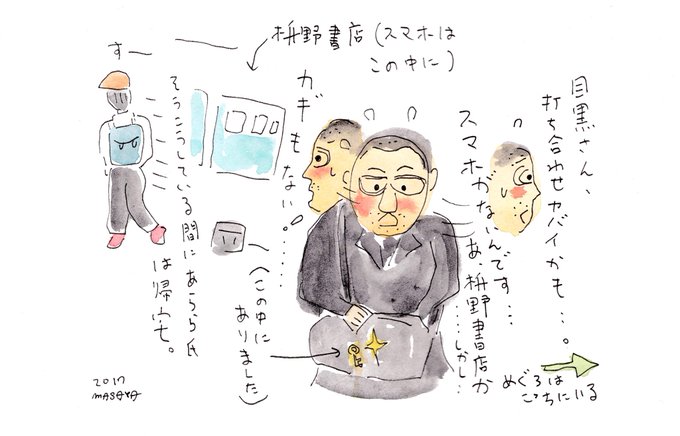 目黒さん、
打ち合わせヤバイかも…。
スマホがないんです…
あ、枡野書店か
……しかし…
カギもない!……
枡野書店(スマホは
この中に)
すー
そうこうしている間にあらら氏
は帰宅。
(この中に
ありました)
めぐろは
こっちにいる
2017
MASAYA